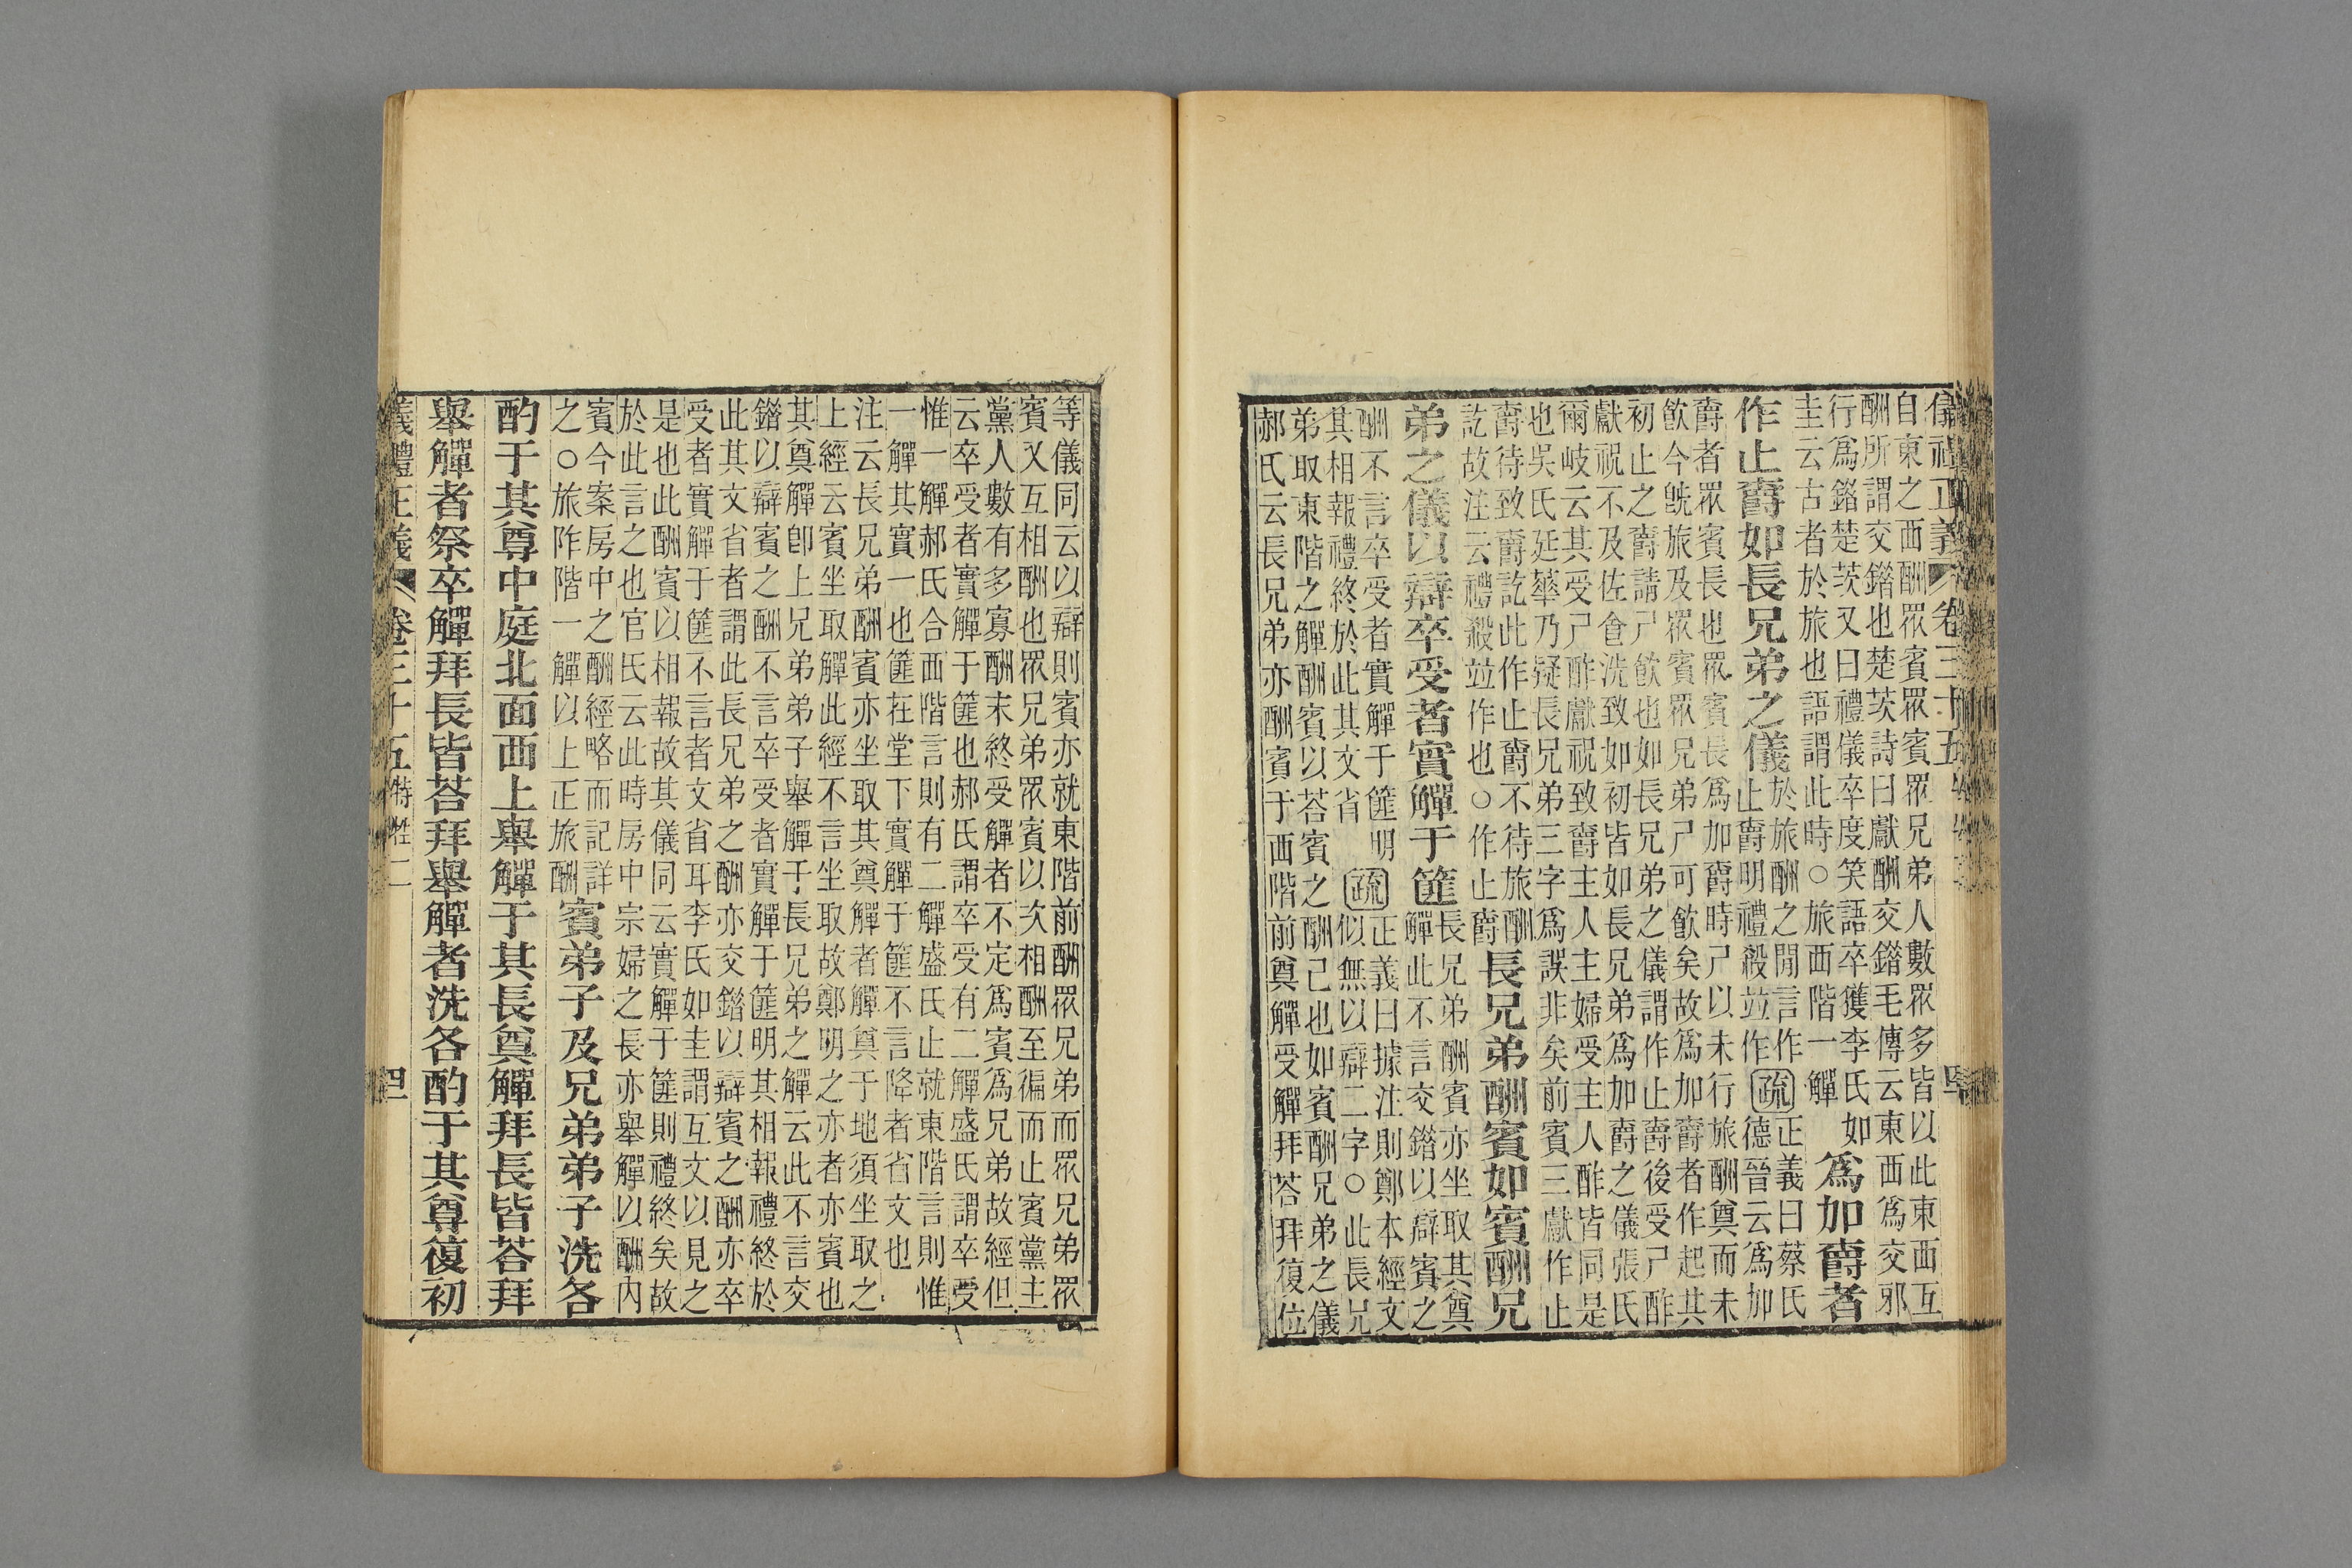 儀禮正義 卷三十五
自東之西酬眾賓眾賓眾兄弟人數眾多皆以此東西互
酬所謂交錯也楚茨詩曰獻酬交錯毛傳云東西為交邪
行為錯楚茨又曰禮儀卒度笑語卒獲李氏如
圭云古者於旅也語謂此時○旅西階一觶
為加爵者
作止爵如長兄弟之儀
於旅酬之間言作
止爵明禮殺竝作
疏
正義曰蔡氏
德晉云為加
爵者眾賓長也眾賓長為加爵時尸以未行旅酬奠而未
飲今旣旅及眾賓眾兄弟尸可飲矣故為加爵者作起其
初止之爵請尸飲也如長兄弟之儀謂作止爵後受尸酢
獻祝不及佐食洗致如初皆如長兄弟為加爵之儀張氏
爾岐云其受尸酢獻祝致爵主人主婦受主人酢皆同是
也吳氏廷華乃疑長兄弟三字為誤非矣前賓三獻作止
爵待致爵訖此作止爵不待旅酬
訖故注云禮殺竝作也○作止爵
長兄弟酬賓如賓酬兄
弟之儀以辯卒受者實觶于篚
長兄弟酬賓亦坐取其奠
觶此不言交錯以辯賓之
酬不言卒受者實觶于篚明
其相報禮終於此其文省
疏
正義曰據注則鄭本經文
似無以辯二字○此長兄
弟取東階之觶酬賓以荅賓之酬己也如賓酬兄弟之儀
郝氏云長兄弟亦酬賓于西階前奠觶受觶拜荅拜復位
等儀同云以辯則賓亦就東階前酬眾兄弟而眾兄弟眾
賓又互相酬也眾兄弟眾賓以次相酬至徧而止賓黨主
黨人數有多寡酬末終受觶者不定為賓為兄弟故經但
云卒受者實觶于篚也郝氏謂卒受有二觶盛氏謂卒受
惟一觶郝氏合西階言則有二觶盛氏止就東階言則惟
一觶其實一也篚在堂下實觶于篚不言降者省文也
注云長兄弟酬賓亦坐取其奠觶者觶奠于地須坐取之
上經云賓坐取觶此經不言坐取故鄭明之亦者亦賓也
其奠觶卽上兄弟弟子舉觶于長兄弟之觶云此不言交
錯以辯賓之酬不言卒受者實觶于篚明其相報禮終於
此其文省者謂此長兄弟之酬亦交錯以辯賓之酬亦卒
受者實觶于篚不言者文省耳李氏如圭謂互文以見之
是也此酬賓以相報故其儀同云實觶于篚則禮終矣故
於此言之也官氏云此時房中宗婦之長亦舉觶以酬內
賓今案房中之酬經略而記詳
之○旅阼階一觶以上正旅酬
賓弟子及兄弟弟子洗各
酌于其尊中庭北面西上舉觶于其長奠觶拜長皆荅拜
舉觶者祭卒觶拜長皆荅拜舉觶者洗各酌于其尊復初
儀禮正義 卷三十五 特牲二